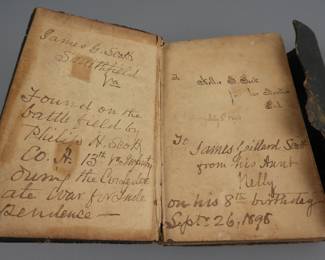 James G. Scott
Smithfield
Va
Found on the
battlefield by
Philip H. Scott
Co. A. 13th Va Infantry
during the Confeder
ate War for Inde
pendence —
To
To James Gaillard Scott
from his Aunt
Nelly
on his 8th birthday
Septr 26, 1898